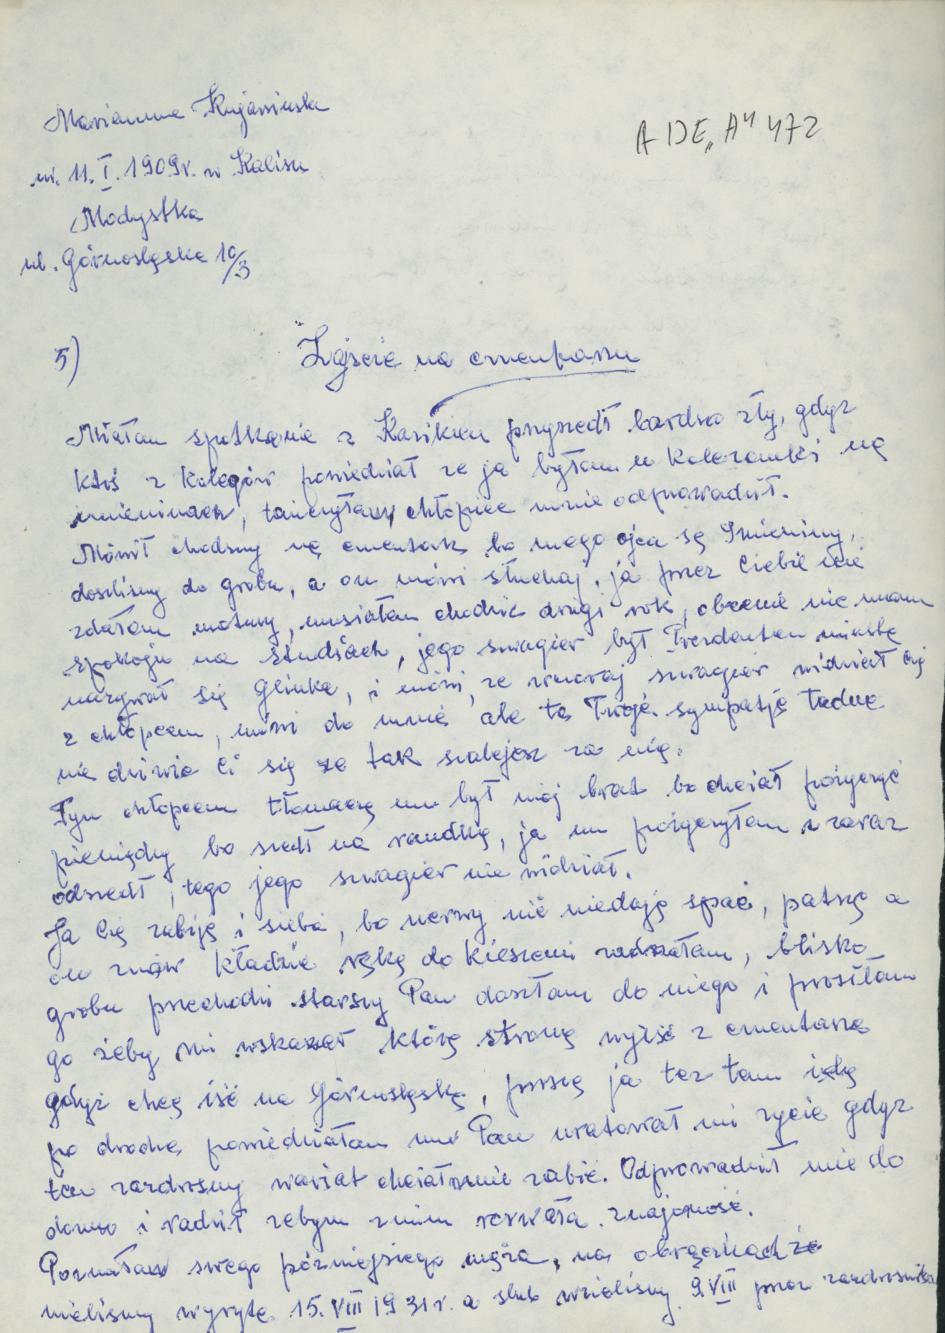 Marianna Kujawińska
ur. 11.I.1909r. w Kaliszu
Modystka
ul. Górnośląska 10/3
A DE„A" 472
5) Zajście na cmentarzu
Miałam spotkanie z Kazikiem przyszedł bardzo zły, gdyż
ktoś z kolegów powiedział ze ja byłam u koleżanki na
imieninach, tańczyłam, chłopiec mnie odprowadził.
Mówił chodzmy na cmentarz bo mego ojca są Imieniny,
doszlismy do grobu, a on mówi słuchaj, ja przez Ciebie nie
zdałem matury, musiałem chodzić drugi rok, obecnie nie mam
spokoju na studiach, jego szwagier był Prezdentem miasta
nazywał się Glinka, i mówi, ze wczoraj szwagier widział Cię
z chłopcem, mówi do mnie ale ta Twoja sympatja ładna
nie dziwie Ci się ze tak szalejesz za nią.
Tym chłopcem tłomaczę mu był mój brat bo chciał pożyczyć
pieniędzy bo szedł na randkę, ja mu pożyczyłam i zaraz
odszedł, tego jego szwagier nie widział.
Ja Cię zabiję i siebie, bo nerwy nie niedają spać, patrzę a
on znów kładzie rękę do kieszeni zadrżałam, blisko
grobu przechodzi starszy Pan doszłam do niego i prosiłam
go żeby mi wskazał którą stroną wyjść z cmentarza
gdyż chcę iść na Górnośląską, proszę ja tez tam idę
po drodze powiedziałam mu Pan uratował mi zycie gdyz
ten zazdrosny wariat chciał mnie zabić. Odprowadził mie do
domu i radził zebym z nim zerwała znajomość.
Poznałam swego późniejszego męża, na obrączkach ze
mielismy wyryte 15.VIII 1931r. a slub wzielismy 9.VIII przez zazdrosnika